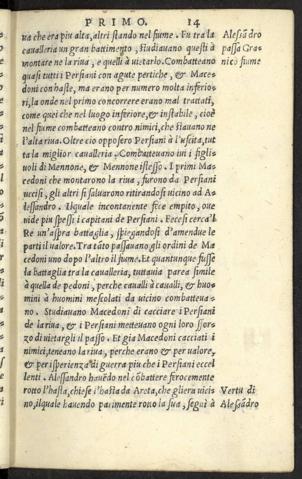 PRIMO. 14
ua che era piu alta, altri stando nel fiume. Fu tra la
cavalleria un gran battimento, studiauano questi à
montare ne la riua, e quelli à uietarlo. Combatteano
quasi tutti i Persiani con agute pertiche, & Mace
doni con haste, ma erano per numero molto inferio-
ri, la onde nel primo concorrere erano mal trattati,
come quei che nel luogo inferiore, & instabile, cioè
nel fiume combatteano contro nimici, che stauano ne
l'alta riua. Oltre cio opposero Persiani à l'uscita, tut
ta la miglior cavalleria. Combatteuano iui i figli-
uoli di Mennone, & Mennone istesso. I primi Mas
cedoni che montorono la riua, furono da Persiani
uccisi, gli altri si saluarono ritirandosi uicino ad A-
lessandro. Ilquale incontanente fece empito, oue
uide piu spessi i capitani de Persiani. Fecesi cerca'l
Rè un'aspra battaglia, spiegandosi d'amendue le
parti il ualore. Tra tãto passauano gli ordini de Ma
cedoni uno dopo l'altro il fiume. Et quantunque fusse
la battaglia tra la caualleria, tuttauia parea simile
à quella de pedoni, perche caualli à caualli, & huo-
mini à huomini mescolati da uicino combatteua-
no. Studiauano Macedoni di cacciare i Persiani
de la riua, & i Persiani metteuano ogni loro sfor-
zo di uietargli il passo. Et gia Macedoni cacciati i
nimici, teneano la riua, perche erano & per ualore,
& per isperienza di guerra piu che i Persiani eccel
lenti. Alessandro hauẽdo nel cõbattere ferocemente
rotto l'hasta, chiese l'hasta da Areta, che gliera uici
no, ilquale hauendo parimente rotto la sua, segui à
Alessãdro
passa Gra-
nico fiume
Vertu di
Alessãdro